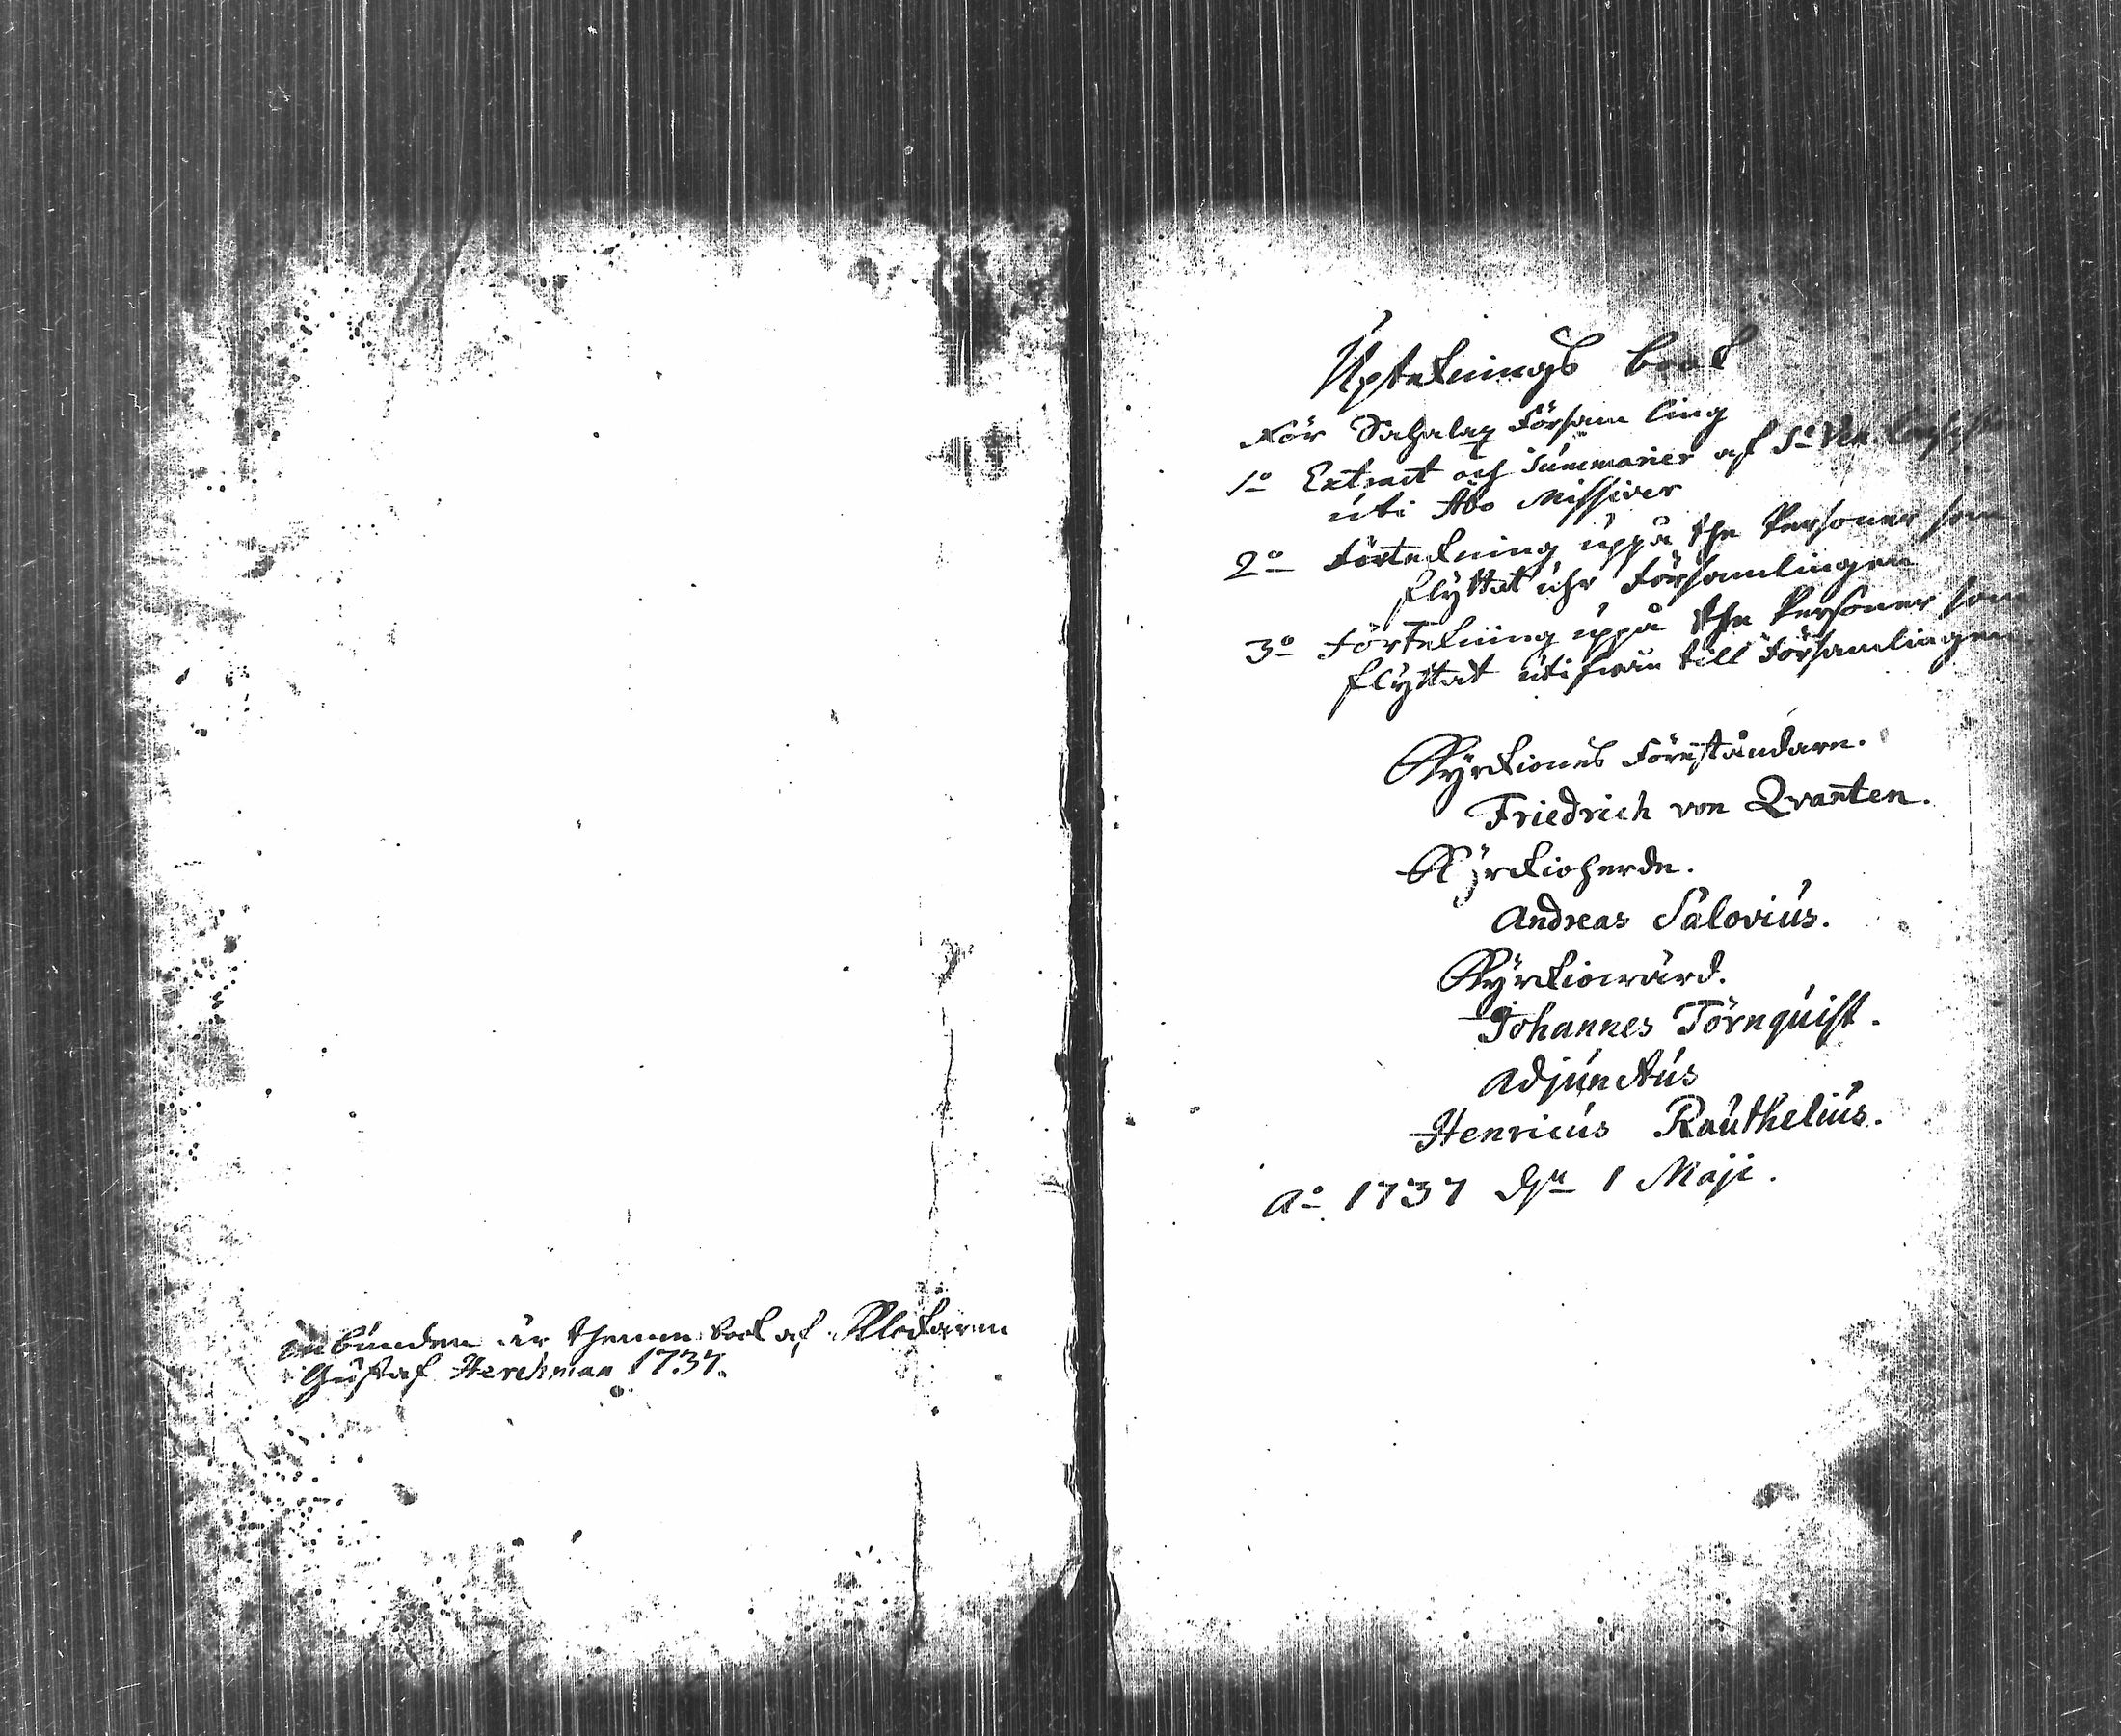 Inbunden är thenna book af Klockaren
Gustaf Herckman 1737.
Upteknings book
För Sahalax Församling
1o Extract och Summarier af
uti Åbo Missiver
2o Förtekning uppå the Personer som
flyttat uhr Församlingen
3o Förtekning uppå the Personer som
flyttat utifrån till Församlingen
Kyrkiones Föreståndare.
Friedrich von Qvanten.
Kyrkioherde.
Andreas Salovius.
Kyrkiowärd.
Johannes Törnquist.
Adjunctus
Henricus Rauthelius.
Ao 1737 dn 1 Maji.